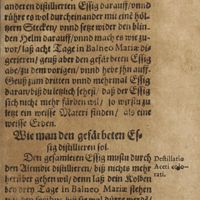 anderen distillierten Essig darauff/ vnnd
rühre es wol durcheinander mit eine höl-
nern Stecken/ vnnd setze wider den blin-
den Helm darauff/ vnnd mach es wie zu-
vor/ laß acht Tage in Balneo Mariæ di-
gerieren/ geuß aber den gefärbten Essig
ab/ zu dem vorigen/ vnnd hebe jhn auff.
Geuß zum dritten vnnd mehrmal Essig
daran/ biß du letzlich sehest/ daß der Essig
sich nicht mehr färben wil/ so wirstu auff
ein weisse Materi finden/ als
eine weisse Erden.
Wie man den gefärbeten Es-
sig distillieren sol.
Den gesamleten Essig mustu durch
den Alembic distillieren/ biß nichts mehr
herüber gehen wil/ denn laß dein Kolben
bey drey Tage in Balneo Mariæ stehen
Destillatio
Aceti colo-
rati.